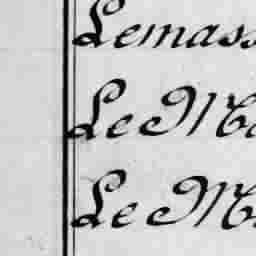 Lemass
Le M
Le M